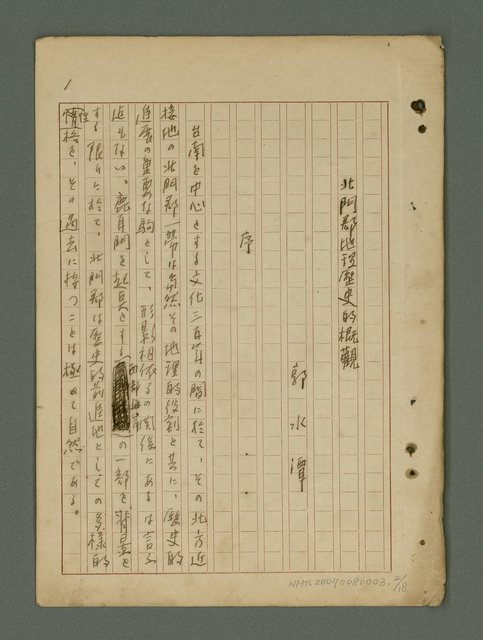 1
北門郡地理歷史的概觀
郭水潭
序
台南を中心とする文化三百年の間に於て、その北方近
接地の北門郡一帶は當然その地理的役割と共に、歷史的
進展の重要な駒として、形影相依るの関係にあるは言う
迄もない。鹿耳門を起点とする西部海岸の一部を背景と
する限りに於て、北門郡は歷史的前進地としての多樣的
性格を、その過去に持つことは極めて自然である。
NMTL20070080003, 2/18